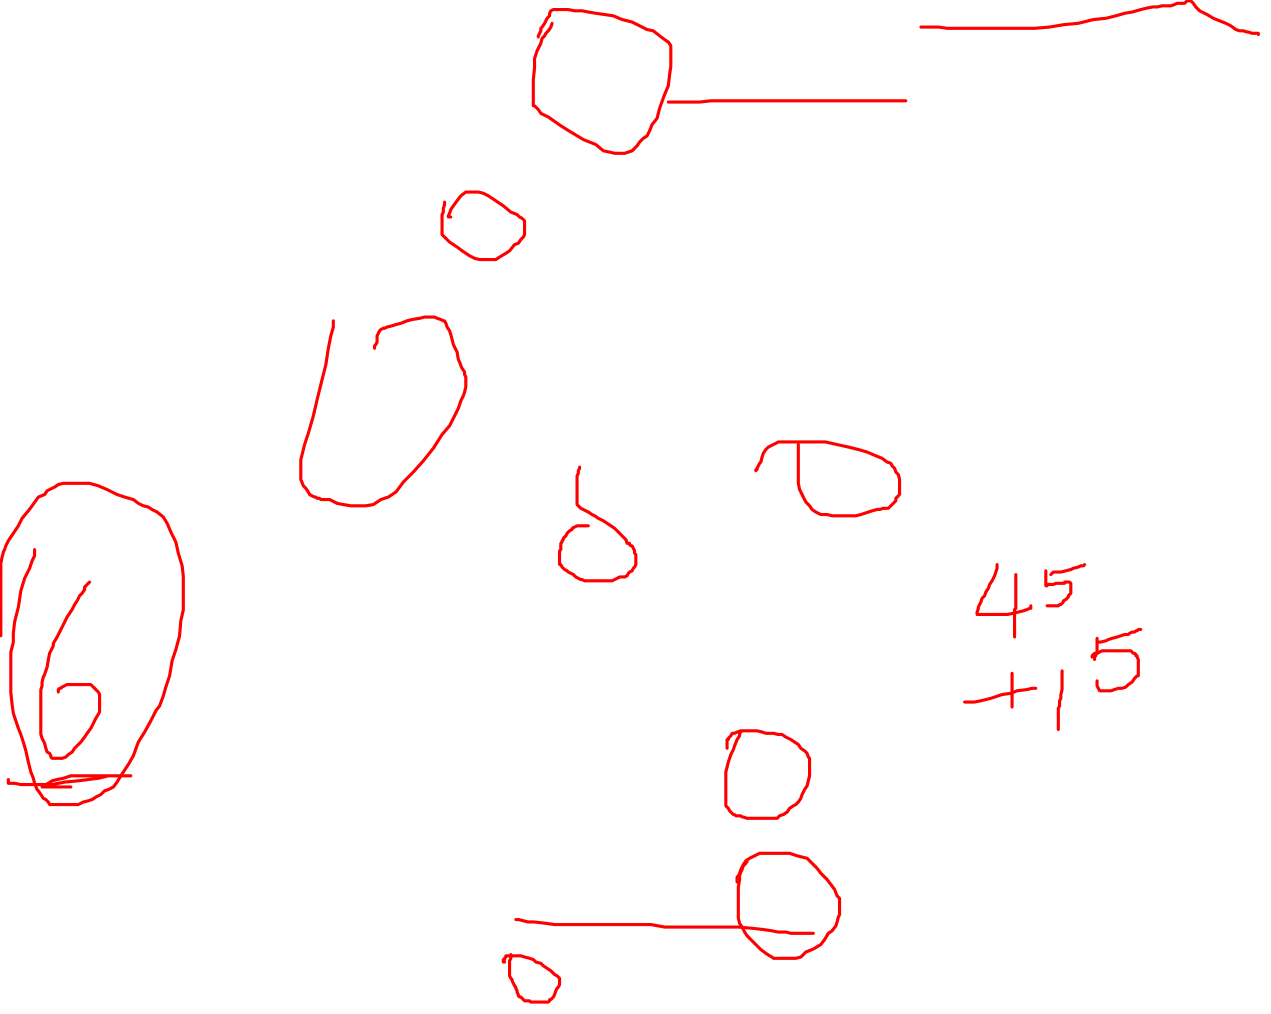 6
45
+15